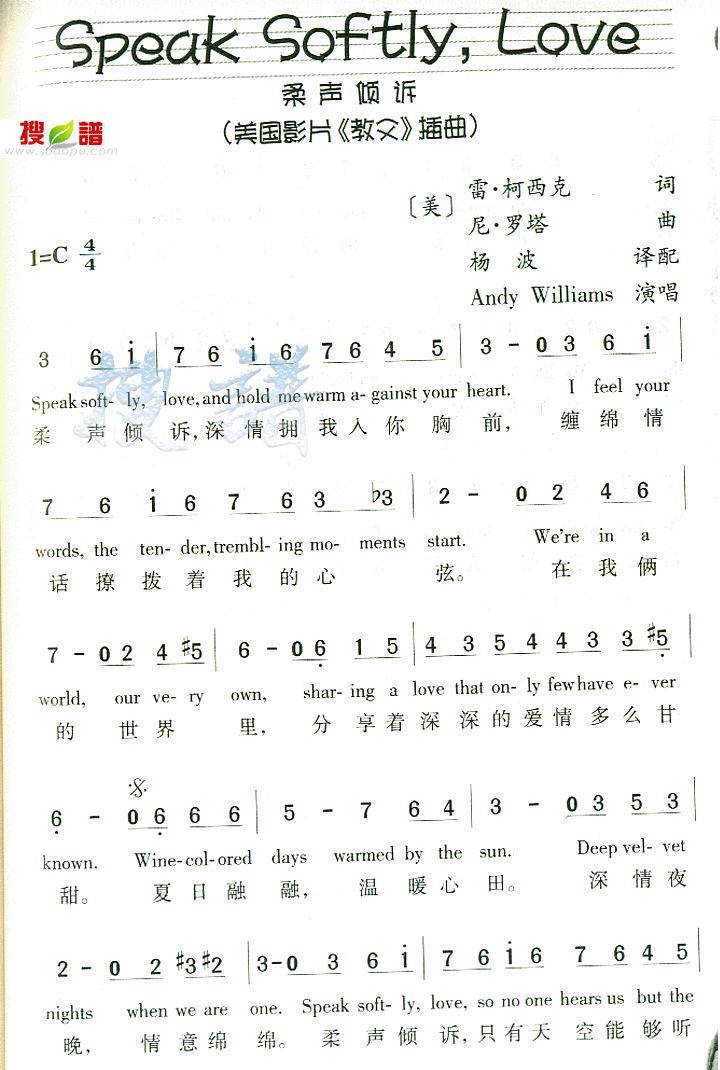 Speak Softly, Love
柔声倾诉
(美国影片《教父》插曲)
搜谱
www.sooopu.com
〔美〕 雷·柯西克 词
尼·罗塔 曲
1=C 4/4
杨波 译配
Andy Williams 演唱
3 6 i | 7 6 i 6 7 6 4 5 | 3 - 0 3 6 i |
Speak soft- ly, love, and hold me warm a- gainst your heart. I feel your
柔 声 倾 诉, 深 情 拥 我 入 你 胸 前, 缠 绵 情
7 6 i 6 7 6 3 ♭3 | 2 - 0 2 4 6 |
words, the ten- der, trembl- ing mo- ments start. We're in a
话 撩 拨 着 我 的 心 弦。 在 我 俩
7 - 0 2 4 #5 | 6 - 0 6 1 5 | 4 3 5 4 4 3 3 #5 |
world, our ve- ry own, shar- ing a love that on- ly few have e- ver
的 世 界 里, 分 享 着 深 深 的 爱 情 多 么 甘
6 - 0 6 6 6 | 5 - 7 6 4 | 3 - 0 3 5 3 |
known. Wine- col- ored days warmed by the sun. Deep vel- vet
甜。 夏 日 融 融, 温 暖 心 田。 深 情 夜
2 - 0 2 #3 #2 | 3 - 0 3 6 i | 7 6 i 6 7 6 4 5 |
nights when we are one. Speak soft- ly, love, so no one hears us but the
晚, 情 意 绵 绵。 柔 声 倾 诉, 只 有 天 空 能 够 听